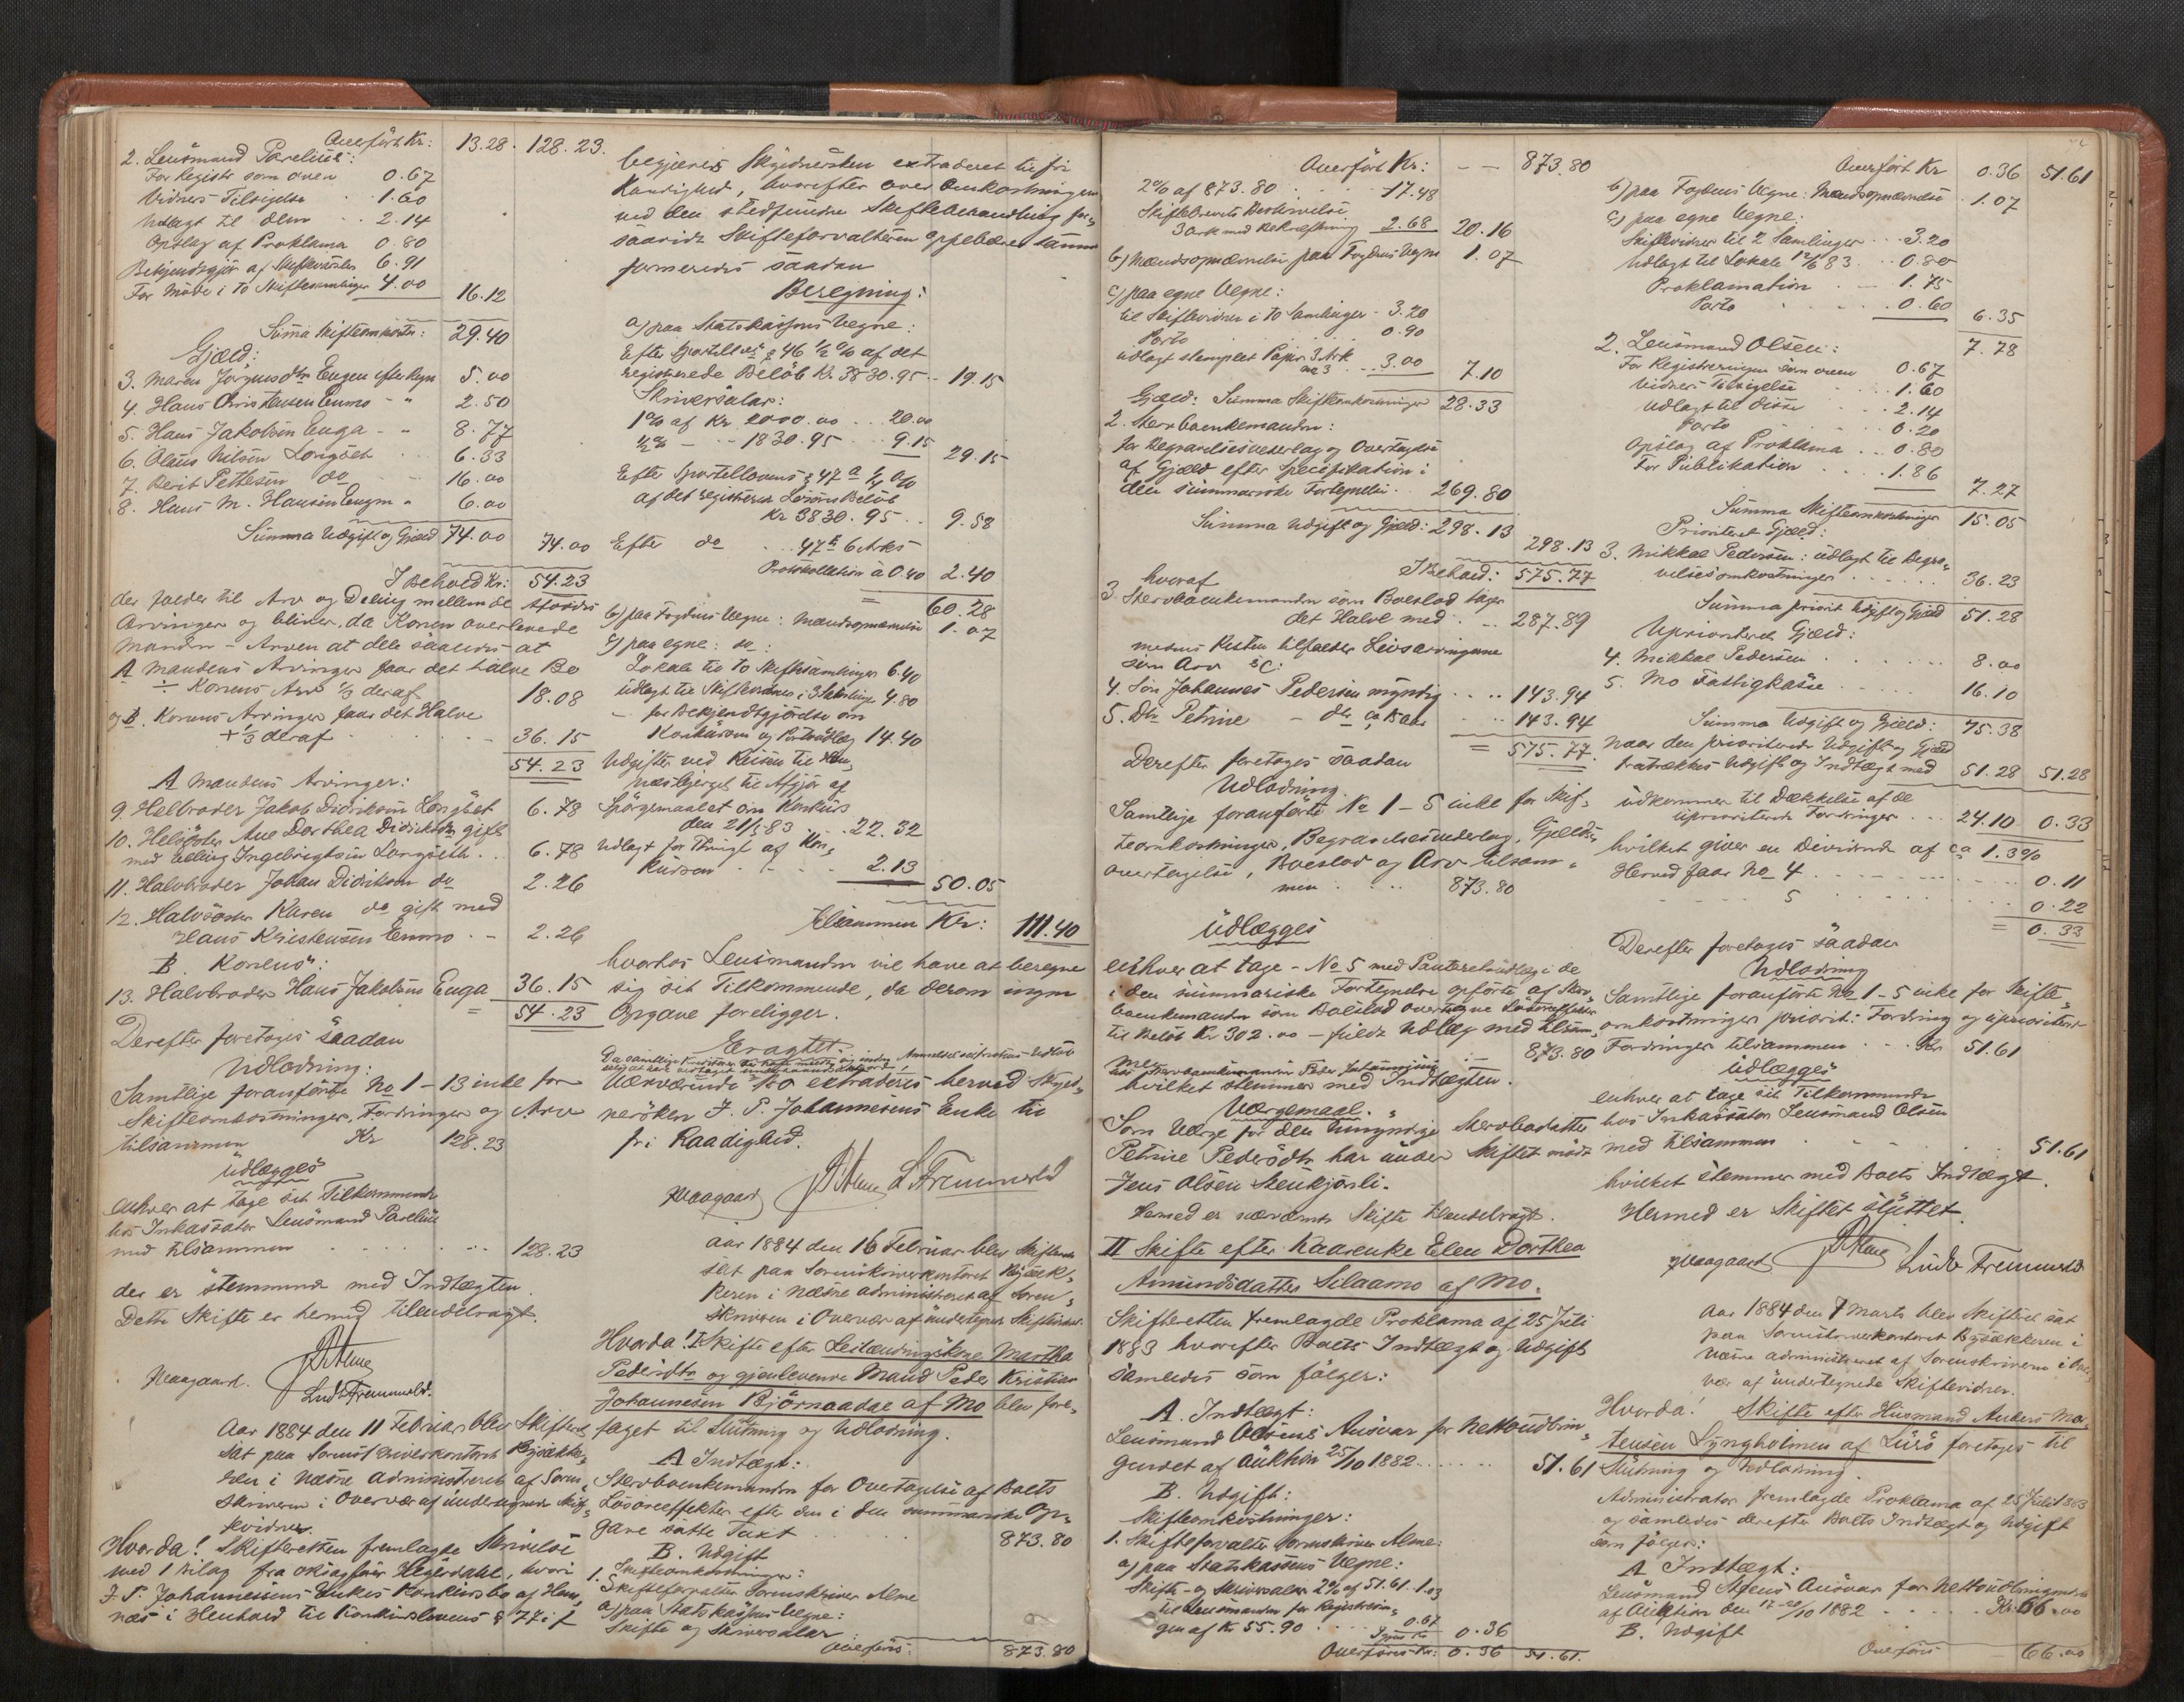 Overført Kr: 13.28. 128.23.
2. Lensmand Parelius:
For Registr som oven 0.67
Vidners Tilsigelse 1.60
Udlagt til dem 2.14
Opslag af Proklama 0.80
Bekjendtgjør af 6.91
For Møde i to Skiftesamlinger 4.00 16.12
Summa Skifteomkostn: 29.40
Gjæld:
3. Maren Jørgensdtr Engen efter Regn 5.00
4. Hans Christensen Enmo - " 2.50
5. Hans Jakobsen Enga - " 8.77
6. Olaus Nilsen Langset 6.33
7. Berit Pettersen do 16.00
8. Hans M. Hansen Engm " 6.00
Summa Udgift og Gjæld 74.00 74.00
I Behold Kr: 54.23
der falder til Arv og Deling mellem de Afdødes
Arvinger og bliver, da Konen overlevede
Manden - Arven at dele saaledes at
A Mandens Arvinger faar det halve Bo
÷ Konens Arv 1/3 deraf 18.08
og B. Konens Arvinger faar det Halve
+ 1/3 deraf 36.15
54.23
A Mandens Arvinger:
9. Helbroder Jakob Didriksen Langset 6.78
10. Helsøster Ane Dorthea Didriksdtr gift
med Elling Ingebrigtsen Langseth 6.78
11. Halvbroder Johan Didriksen do 2.26
12. Halvsøster Karen do gift med
Hans Kristensen Enmo 2.26
B. Konens:
13. Halvbroder Hans Jakobsen Enga 36.15
= 54.23
Derefter foretoges saadan
Udlodning:
Samtlige foranførte No 1 - 13 inkl for
Skifteomkostninger, Fordringer og Arv
tilsammen Kr 128.23
udlægges
enhver at tage sit Tilkommende
hos Inkassator Lensmand Parelius
med tilsammen 128.23
der er stemmende med Indtægten.
Dette Skifte er hermed tilendebragt.
Alme
Haagaard. Ludv Fremmvold.
Aar 1884 den 11 Februar blev Skifteret
sat paa Sorenskriverkontoret Bysække-
ren i Næsne administreret af Soren-
skriveren i Overvær af undertegnede Skif-
tevidner.
Hvorda! Skifteretten fremlagde Skrivelse
med 1 Bilag fra Oksagfører Hegerdahl, hvori
J. P. Johannesens Enkes Konkursbo af Hem-
næs i Henhold til Konkurslovens § 77 i f
begjæres Skyldnersken extraderet til fri
Raadighed, hvorefter over Omkostningen
ved den stedfundne Skiftebehandling for-
saavidt Skifteforvalteren oppebærer samme
formeredes saadan
Beregning:
a) paa Statskassens Vegne:
Efter Sportell § 46 1/2 % af det
registrerede Beløb Kr. 3830.95 - 19.15
Skriversalær:
1% af Kr 2000.00 20.00
1/2% - 1830.95 9.15 29.15
Efter Sportellovens § 47 a 1/4 %
af det registrerede Løsøres Beløb
Kr 3830.95 9.58
Efter do 47 b 6 Arks
Protokollation à 0.40 2.40
= 60.28
b) paa Fogdens Vegne: Mændsopnævnelse 1.07
c) paa egne: do:
Lokale til to Skiftesamlinger 6.40
Udlagt til Skiftevidner i 3 Samlinger 4.80
- for Bekjendtgjørelse om
Konkursen og Portoudlæg 14.40
Udgifter ved Reisen til Hem-
næsbjerget til Afgjør af
Spørgsmaalet om Konkurs
den 21/3 83 22.32
Udlagt for Thingl af Kon-
kursen 2.13 50.05
tilsammen Kr: 111.40
hvorhos Lensmanden vil have at beregne
sig sit Tilkommende, da derom ingen
Opgave foreligger.
Eragtet.
Nærværende Bo extraderes herved Skyld-
nersken J. P. Johannesens Enke til
fri Raadighed.
Haagaard Alme L. Fremmvold
Aar 1884 den 16 Februar blev Skifteret
sat paa Sorenskriverkontoret Bysæk-
keren i Næsne administreret af Soren-
skriveren i Overvær af undertegnede Skiftevidner.
Hvorda! I Skifte efter Leilændingskone Martha
Pedersdtr og gjenlevende Mand Peder Kristian
Johannesen Bjørnaadae af Mo blev fore-
taget til Slutning og Udlodning.
A Indtægt:
Stervboenkemanden for Overtagelse af Boets
Løsøreeffekter efter den i den summariske Op-
gave satte Taxt 873.80
B. Udgift
Skifteomkostninger:
1. Skifteforvalter Sorenskriver Alme
a) paa Statskassens Vegne:
Skifte og Skriversalær
Overføres: 873.80
Overført Kr: - - 873.80
2% af 873.80 17.48
Skiftebrevets Beskrivelse
3 Ark med Bekræftning 2.68 20.16
b) Mændsopnævnelse paa Fogdens Vegne 1.07
c) paa egne Vegne:
til Skiftevidner i to Samlinger - 3.20
Porto 0.90
Udlagt stemplet Papir 3 Ark
No 3 3.00 7.10
Gjæld: Summa Skifteomkostninger 28.33
2. Stervboenkemanden:
for Begravelsesvederlag og Overtagelse
af Gjæld efter Specifikation i
den summariske Fortegnelse 269.80
Summa Udgift og Gjæld: 298.13 298.13
I Behold: 575.77
hvoraf
3. Stervboenkemanden som Boeslod tager
det Halve med 287.89
medens Resten tilfalder Livsarvingerne
som Arv &c:
4. Søn Johannes Pedersen myndig 143.94
5. Dtr Petrine - dtr ca 13 Aar 143.94
= 575.77.
Derefter foretoges saadan
Udlodning.
Samtlige foranførte No 1 - 5 inkl for Skif-
teomkostninger, Begravelsesvederlag, Gjelds-
overtagelse, Boeslod og Arv tilsam-
men 873.80
udlægges
enhver at tage - No 5 med Panteretsudlæg i de
i den summariske Fortegnelse opførte af Sterv-
boenkemanden som Boeslod overtagne Løsøreeffekter
til Beløb Kr 302.00 - fuldt Udlæg med tilsam-
men 873.80
hvilket stemmer med Indtægten.
Værgemaal.
Som Værge for den umyndige Stervbodatter
Petrine Pedersdtr har under Skiftet mødt
Jens Olsen Stenkjønli.
Hermed er nærværende Skifte tilendebragt.
II Skifte efter Kaarenke Elen Dorthea
Amundsdatter Selaamo af Mo.
Skifteretten fremlagde Proklama af 25 Juli
1883 hvorefter Boets Indtægt og Udgift
samledes som følger:
A. Indtægt:
Lensmand Olsens Ansvar for Nettoudbrin-
gendet af Auktion 25/10 1882 51.61
B. Udgift:
Skifteomkostninger:
1. Skifteforvalter Sorenskriver Alme:
a) paa Statskassens Vegne:
Skifte- og Skriversalær 2% af 51.61 1.03
til Lensmanden for Registrerin-
gen af Kr 55.90 0.67
0.36
Overføres Kr: 0.36 51.61.
Overført Kr 0.36 51.61
b) paa Fogdens Vegne: Mændsopnævnelse 1.07
c) paa egne Vegne:
Skiftevidner til 2 Samlinger 3.20
Udlagt til Lokale 12/6 83 0.80
Proklamation 1.75
Porto 0.60 6.35
7.78
2. Lensmand Olsen:
For Registreringen som oven 0.67
Vidners Tilsigelse 1.60
Udlagt til disse 2.14
Porto 0.20
Opslag af Proklama 0.80
For Publikation 1.86 7.27
Summa Skifteomkostninger 15.05
Prioriteret Gjæld:
3. Mikkal Pedersen: udlagt til Begra-
velsesomkostninger 36.23
Summa priorit Udgift og Gjæld 51.28
Uprioriteret Gjæld:
4. Mikkal Pedersen 8.00
5. Mo Fattigkasse 16.10
Summa Udgift og Gjæld: 75.38
Naar den prioriterede Udgift og Gjæld
fratrækkes Udgift og Indtægt med 51.28 51.28
udkommer til Dækkelse af de
uprioriterede Fordringer 24.10 0.33
hvilket giver en Dividende af ca 1.3%
Herved faar No 4 0.11
5 0.22
= 0.33
Derefter foretoges saadan
Udlodning
Samtlige foranførte No 1 - 5 inkl for Skifte-
omkostninger priorit: Fordring og uprioriteret
Fordringer tilsammen Kr 51.61
udlægges
enhver at tage sit Tilkommende
hos Inkassator Lensmand Olsen
med tilsammen 51.61
hvilket stemmer med Boets Indtægt.
Hermed er Skiftet sluttet.
Haagaard Alme Ludv Fremmvold
Aar 1884 den 7 Marts blev Skifteret sat
paa Sorenskriverkontoret Bysækkeren i
Næsne administreret af Sorenskriveren i Over-
vær af undertegnede Skiftevidner.
Hvorda! Skifte efter Husmand Anders Mor-
tensen Lyngholmen af Lurø foretoges til
Slutning og Udlodning.
Administrator fremlagde Proklama af 25 Juli 1883
og samledes derefter Boets Indtægt og Udgift
som følger:
A Indtægt:
Lensmand Ansvar for Nettoudbringendet
af Auktion den 17-20/10 1882 Kr. 66.00
B. Udgift
Overføres 66.00